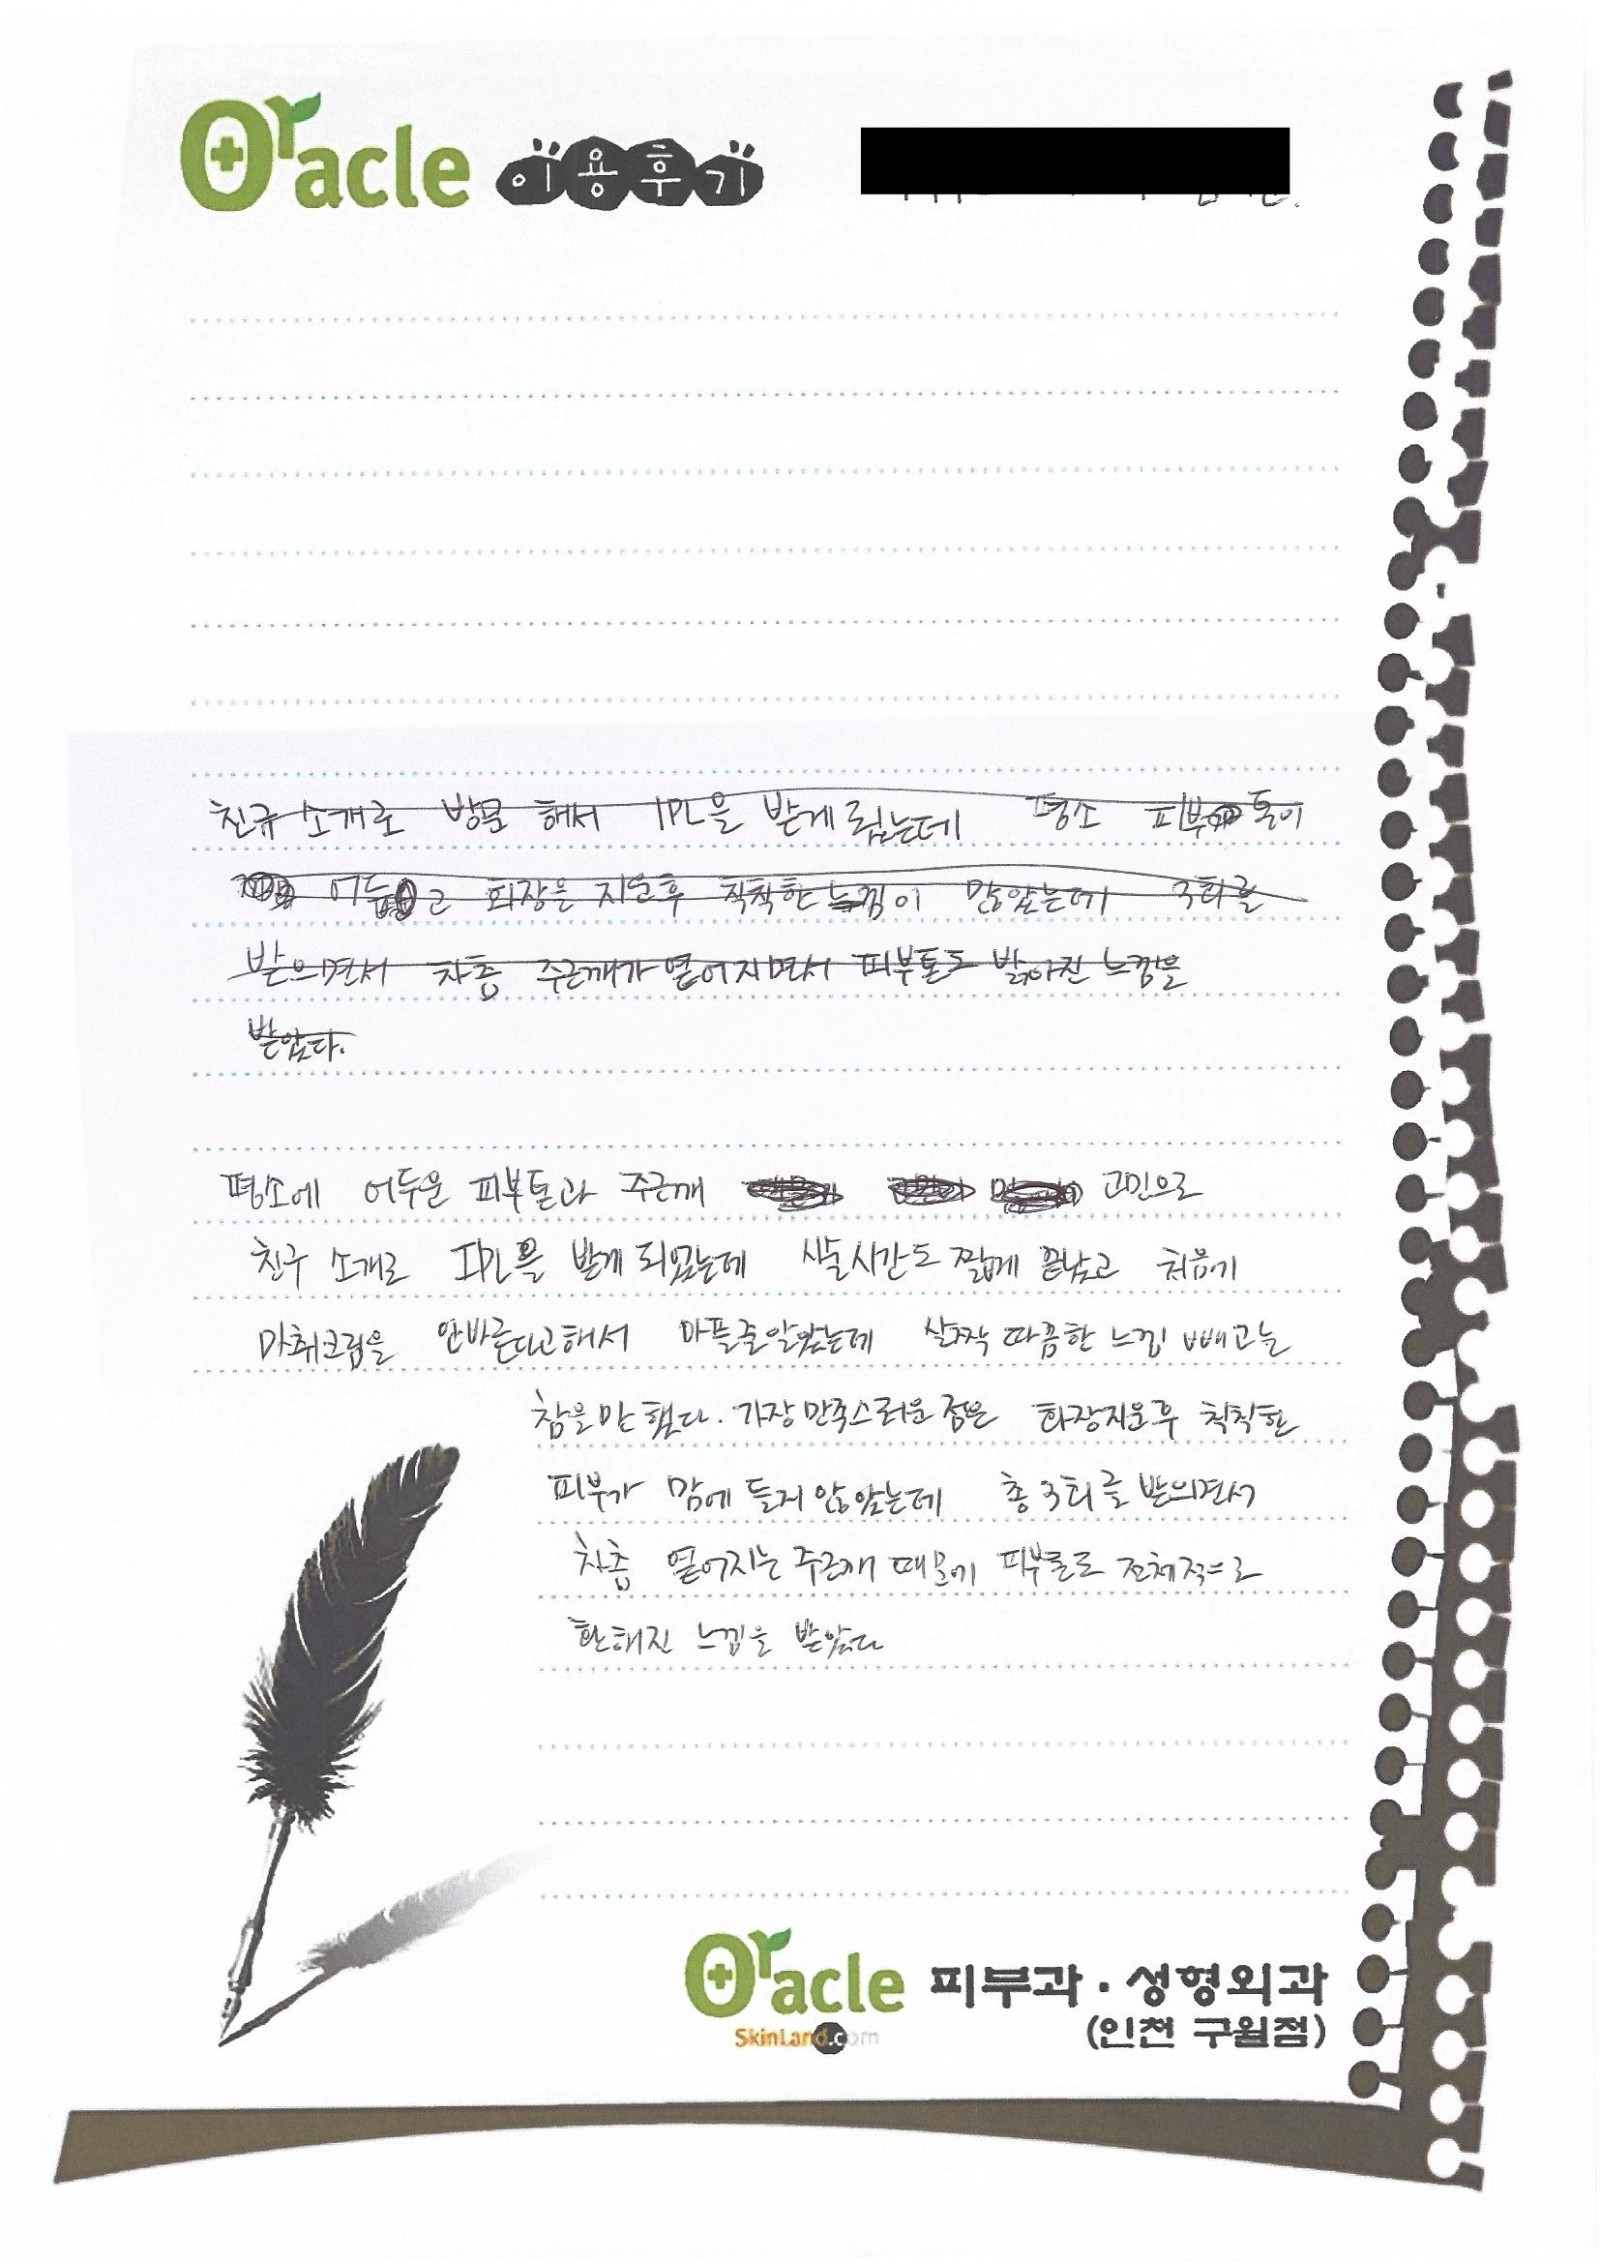 Oracle 이용후기
친구 소개로 방문 해서 IPL을 받게 됬는데 평소 피부 톤이
어둡고 화장을 지운후 칙칙한 느낌이 많았는데 3회를
받으면서 차츰 주근깨가 옅어지면서 피부톤도 밝아진 느낌을
받았다.
평소에 어두운 피부톤과 주근깨 고민으로
친구 소개로 IPL을 받게 되었는데 시술시간도 짧게 끝났고 처음에
마취크림을 안바른다고해서 아플줄알았는데 살짝 따끔한 느낌 빼고는
참을만 했다. 가장 만족스러운 점은 화장지운후 칙칙한
피부가 맘에 들지 않았는데 총 3회를 받으면서
차츰 옅어지는 주근깨 때문에 피부톤도 전체적으로
환해진 느낌을 받았다
Oracle 피부과·성형외과
SkinLand.com
(인천 구월점)